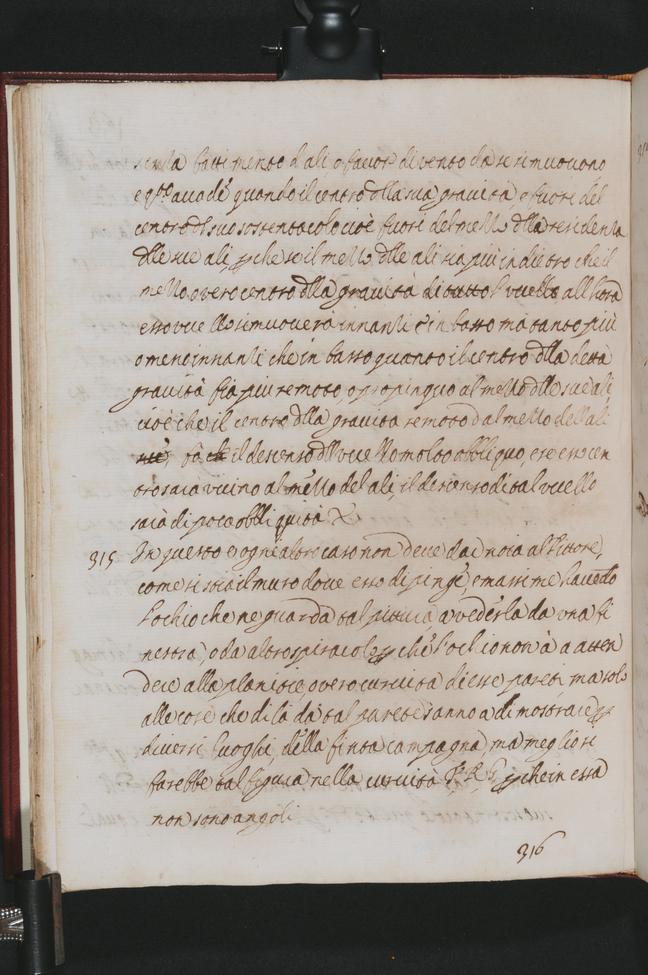 senza battimento d'ali o favor di vento da se si muovono
e q.to acade quando il centro dlla sua gravità e fuori del
centro dl suo sostentacolo cioè fuori del mezzo dlla residenza
dlle sue ali, p che se il mezzo dlle ali sia piu in dietro che il
mezzo overo centro dlla gravità di tutto l'uccello all'hora
esso uccello si muoverà innanti e in basso ma tanto più
o meno innanti che in basso quanto il centro dlla detta
gravità fia piu remoto, o propinquo al mezzo dlle sue ali
cioè che il centro dlla gravità remoto dal mezzo dell ali
fà il descenso dll uccello molto obbliquo, e se esso cen
tro sarà vicino al mezzo del ali, il descenso di tal uccello
sarà di poca obbliquità
315 In questo e ogni altro caso non deve dar noia al Pittore,
come si stia il muro dove esso dipinge, e massime havendo
l'ochio che ne guarda tal pittura a vederla da una fi
nestra, o da altro spiracolo, p che l'ochio non à a atten
dere alla planitie, overo curvità di esse pareti ma solo
alle cose che di là da tal parete s'anno a dimostrare p
diversi luoghi, della finta campagna, ma meglio si
farebbe tal figura nella curvità F, R, G, p che in essa
non sono angoli
316